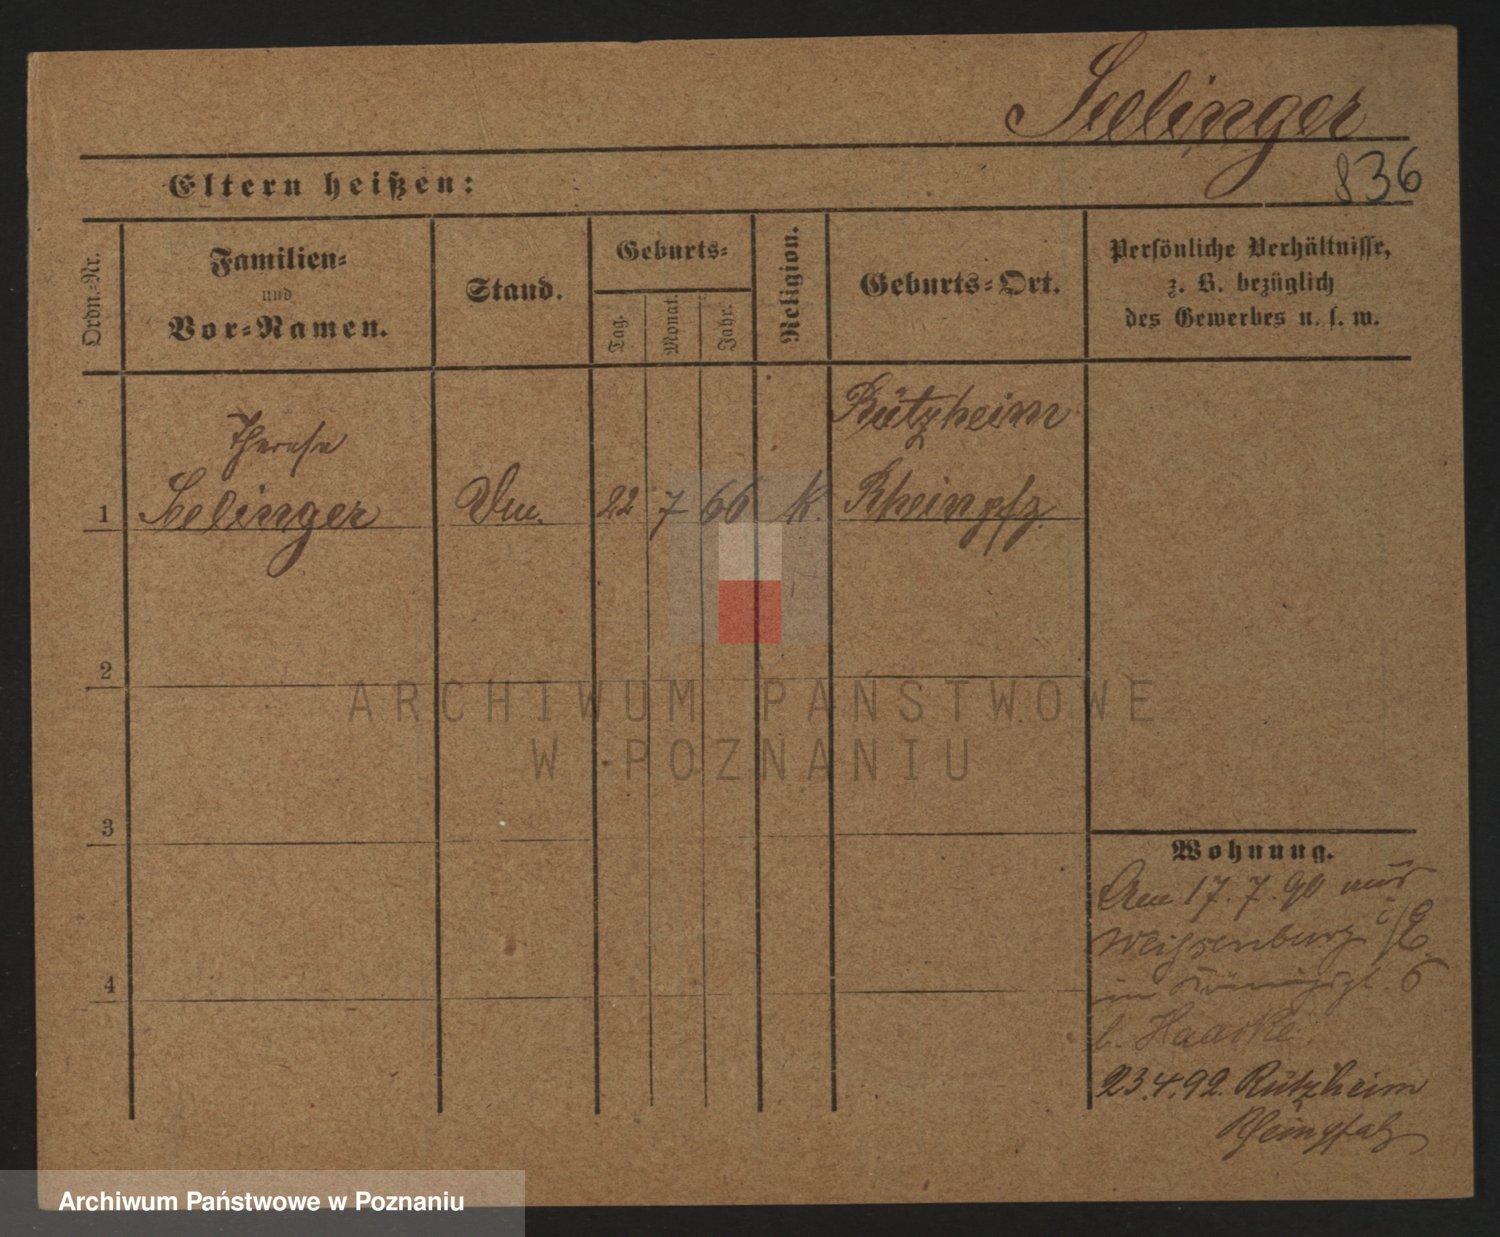 Seelinger
836
Eltern heißen:
Ordn.-Nr.
Familien-
und
Vor-Namen.
Stand.
Geburts-
Tag.
Monat.
Jahr.
Religion.
Geburts-Ort.
Persönliche Verhältnisse,
z. B. bezüglich
des Gewerbes u. s. w.
Therese
1 Seelinger
22 7 66 k.
Rützheim
Rheinpfz.
2
3
4
Wohnung.
Am 17.7.90 aus
Weissenburg i/E.
in Königspl. 6
b. Haacke
23.4.92. Rützheim
Rheinpfalz
ARCHIWUM PAŃSTWOWE
W POZNANIU
Archiwum Państwowe w Poznaniu